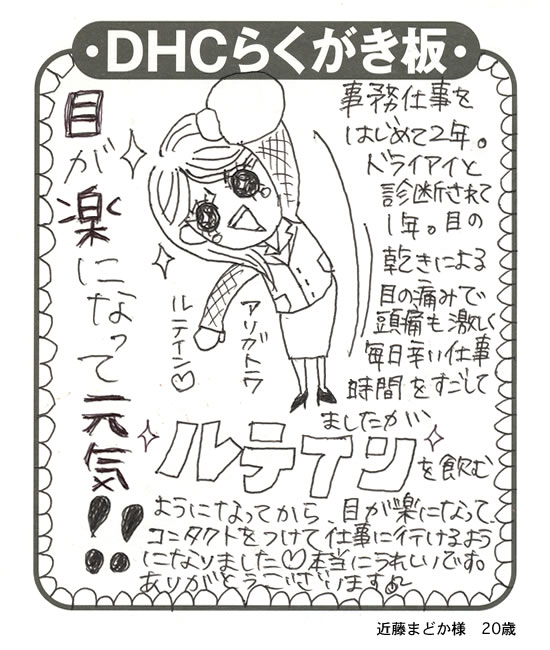 ・DHCらくがき板・
目が楽になって元気!!
事務仕事を
はじめて2年。
ドライアイと
診断されて
1年。目の
乾きによる
目の痛みで
頭痛も激しく
毎日辛い仕事
時間をすごして
ましたが
アリガトウ
ルテイン♡
ルテインを飲む
ようになってから、目が楽になって、
コンタクトをつけて仕事に行けるよう
になりました♡本当にうれしいです。
ありがとうございます
近藤まどか様 20歳